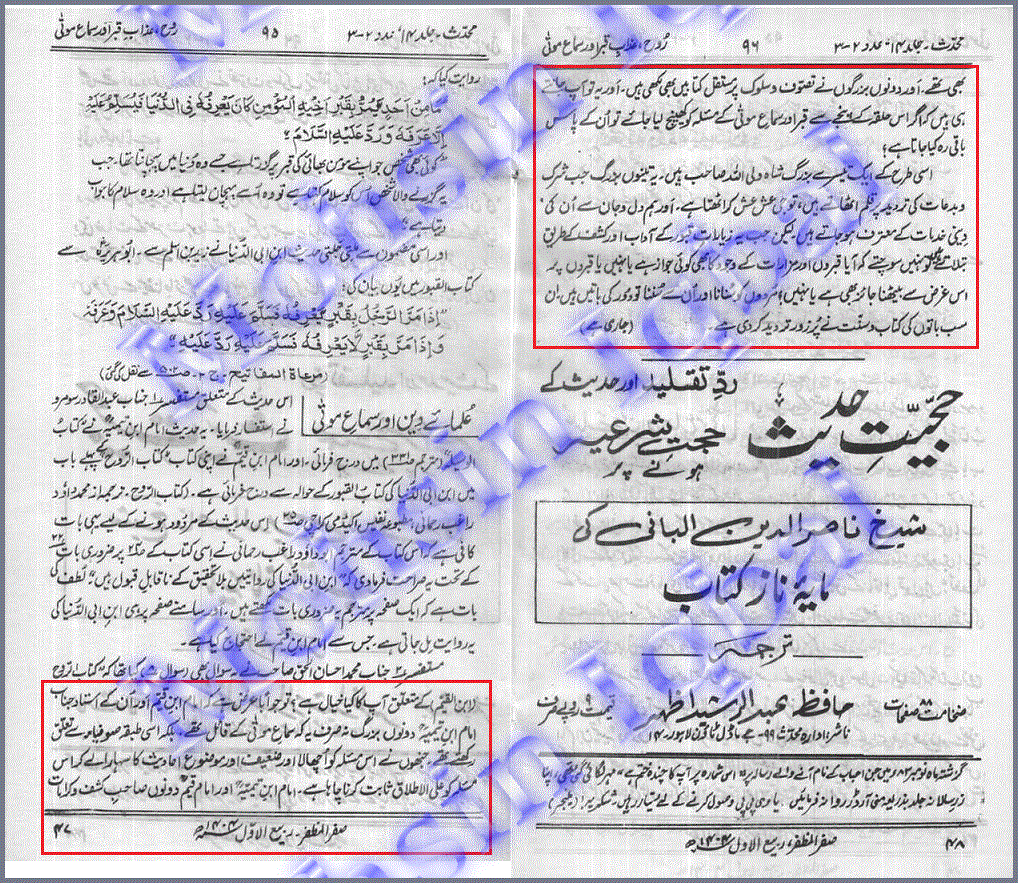 محدّث۔جلد ۱۴ عدد ۲-۳
۹۵
روح، عذابِ قبر اور سماعِ موتٰی
روایت کیا کہ:
مَا مِنْ اَحَدٍ يَمُرُّ بِقَبْرِ اَخِيْهِ الْمُؤْمِنِ كَانَ يَعْرِفُهٗ فِى الدُّنْيَا فَيُسَلِّمُ عَلَيْهِ
اِلَّا عَرَفَهٗ وَرَدَّ عَلَيْهِ السَّلَامَ؛
"کوئی بھی شخص جو اپنے مومن بھائی کی قبر پر گزرتا ہے جسے وہ دُنیا میں پہچانتا تھا، جب
یہ گزرنے والا شخص اُس کو سلام کہتا ہے تو وہ اُسے پہچان لیتا ہے اور وہ سلام کا جواب
دیتا ہے"
اور اسی مفہوم سے ملتی جلتی حدیث ابن ابی الدُّنیا نے زید بن اسلم سے۔ ابوہریرہؓ سے
کتاب القبور میں یُوں بیان کی:
"اِذَا مَرَّ الرَّجُلُ بِقَبْرٍ يَعْرِفُهٗ فَسَلَّمَ عَلَيْهِ رَدَّ عَلَيْهِ السَّلَامَ وَعَرَفَهٗ
وَاِذَا مَرَّ بِقَبْرٍ لَّا يَعْرِفُهٗ فَسَلَّمَ عَلَيْهِ رَدَّ عَلَيْهِ"
(مرعاة المفاتيح ج ۲ ص ۵۰۲ سے نقل کی گئی)
علمائے دین اور سماع موتٰی
اس حدیث کے متعلق مستفسر ۱ جناب عبد القادر سومرو
نے استفسار فرمایا۔ یہ حدیث امام ابن تیمیہؒ نے کتاب
الوسیلہ (مترجم ص ۲۳۱) میں درج فرمائی۔ اور امام ابن قیمؒ نے اپنی کتاب "کتاب الرّوح" کے پہلے باب
میں ابن ابی الدُّنیا کی کتاب القبور کے حوالہ سے درج فرمائی ہے۔ کتاب الرّوح۔ ترجمہ از محمد داؤد
راغب رحمانی مطبوعہ نفیس اکیڈیمی کراچی اس حدیث کے مردُود ہونے کے لیے یہی بات
کافی ہے کہ اس کتاب کے مترجم داؤد راغب رحمانی نے اسی کتاب کے ص۲۲ پر ضروری بات
کے تحت یہ صراحت فرما دی کہ "ابن ابی الدُّنیا کی روایتیں بلا تحقیق کے ناقابلِ قبول ہیں" لُطف کی
بات ہے کہ ایک صفحہ پر مترجم یہ ضروری بات لکھتے ہیں۔ اور سامنے صفحہ پر ہی ابن ابی الدُّنیا کی
یہ روایت مل جاتی ہے۔ جس سے امام ابن قیمؒ نے احتجاج کیا ہے۔
مستفسر جناب محمد احسان الحق صاحب نے یہ سوال بھی کیا تھا کہ "کتاب الرّوح
(لابن القیّم) کے متعلق آپ کا کیا خیال ہے؟ تو جوابًا عرض ہے کہ امام ابن قیمؒ اور اُن کے اُستاد جناب
امام ابن تیمیہؒ دونوں بزرگ نہ صرف یہ کہ سماع موتٰی کے قائل تھے۔ بلکہ اسی طبقہ صوفیا سے تعلق
رکھتے تھے، جنھوں نے اس مسئلہ کو اُچھالا اور ضعیف اور موضوع احادیث کا سہارا لے کر اس
مسئلہ کو علی الاطلاق ثابت کرنا چاہا ہے۔ امام ابن تیمیہؒ اور امام قیمؒ دونوں صاحبِ کشف و کرامات
صفر المظفر۔ ربیع الاوّل ۱۴۰۴ھ
۴۷
محدّث۔جلد ۱۴ عدد ۲-۳
۹۶
رُوح، عذابِ قبر اور سماعِ موتٰی
بھی تھے۔ اور دونوں بزرگوں نے تصوّف و سلوک پر مستقل کتابیں بھی لکھی ہیں۔ اور یہ تو آپ جانتے
ہی ہیں کہ اگر اس حلقہ کے نیچے سے قبر اور سماع موتٰی کے مسئلہ کو کھینچ لیا جائے تو اُن کے پاس
باقی رہ کیا جاتا ہے؛
اسی طرح کے ایک تیسرے بزرگ شاہ ولی اللہ صاحب ہیں۔ یہ تینوں بزرگ جب شرک
و بدعات کی تردید پر قلم اُٹھاتے ہیں، تو جی عش عش کر اُٹھتا ہے۔ اور ہم دل و جان سے اُن کی
دینی خدمات کے معترف ہو جاتے ہیں لیکن جب یہ زیاراتِ قبور کے آداب اور کشف کے طریق
بتلاتے ہیں تو یہ نہیں سوچتے کہ آیا قبروں اور مزارات کے وجود کا بھی کوئی جواز ہے یا نہیں یا قبروں پر
اس غرض سے بیٹھنا جائز بھی ہے یا نہیں؟ مُردوں کو سُنانا اور اُن سے سُننا تو دُور کی باتیں ہیں۔ ان
سب باتوں کی کتاب و سنّت نے پُر زور تردید کر دی ہے۔ (جاری ہے)
ردِّ تقلید اور حدیث کے
حجّیّتِ حدیث
حجتِ شرعیہ
ہونے پر
شیخ ناصر الدین البانی کی
مایۂ ناز کتاب
ترجمہ
ضخامت ۸۸ صفحات
حافظ عبد الرشید اظہر
قیمت ۹ روپے صرف
ناشر: ادارہ محدث ۹۹۔جے ماڈل ٹاؤن لاہور۔۱۴
گزشتہ ماہ نومبر ۸۳ء میں جن احباب کے نام آنے والے رسالہ پر "اس شمارہ پر آپ کا چندہ ختم ہے" مہر لگائی گئی تھی، اپنا
زرِ سالانہ جلد بذریعہ منی آرڈر روانہ فرمائیں۔ یا وی پی پی وصول کرنے کے لیے تیار رہیں۔ شکریہ! (منیجر)
صفر المظفر، ربیع الاول ۱۴۰۴ھ
۴۸